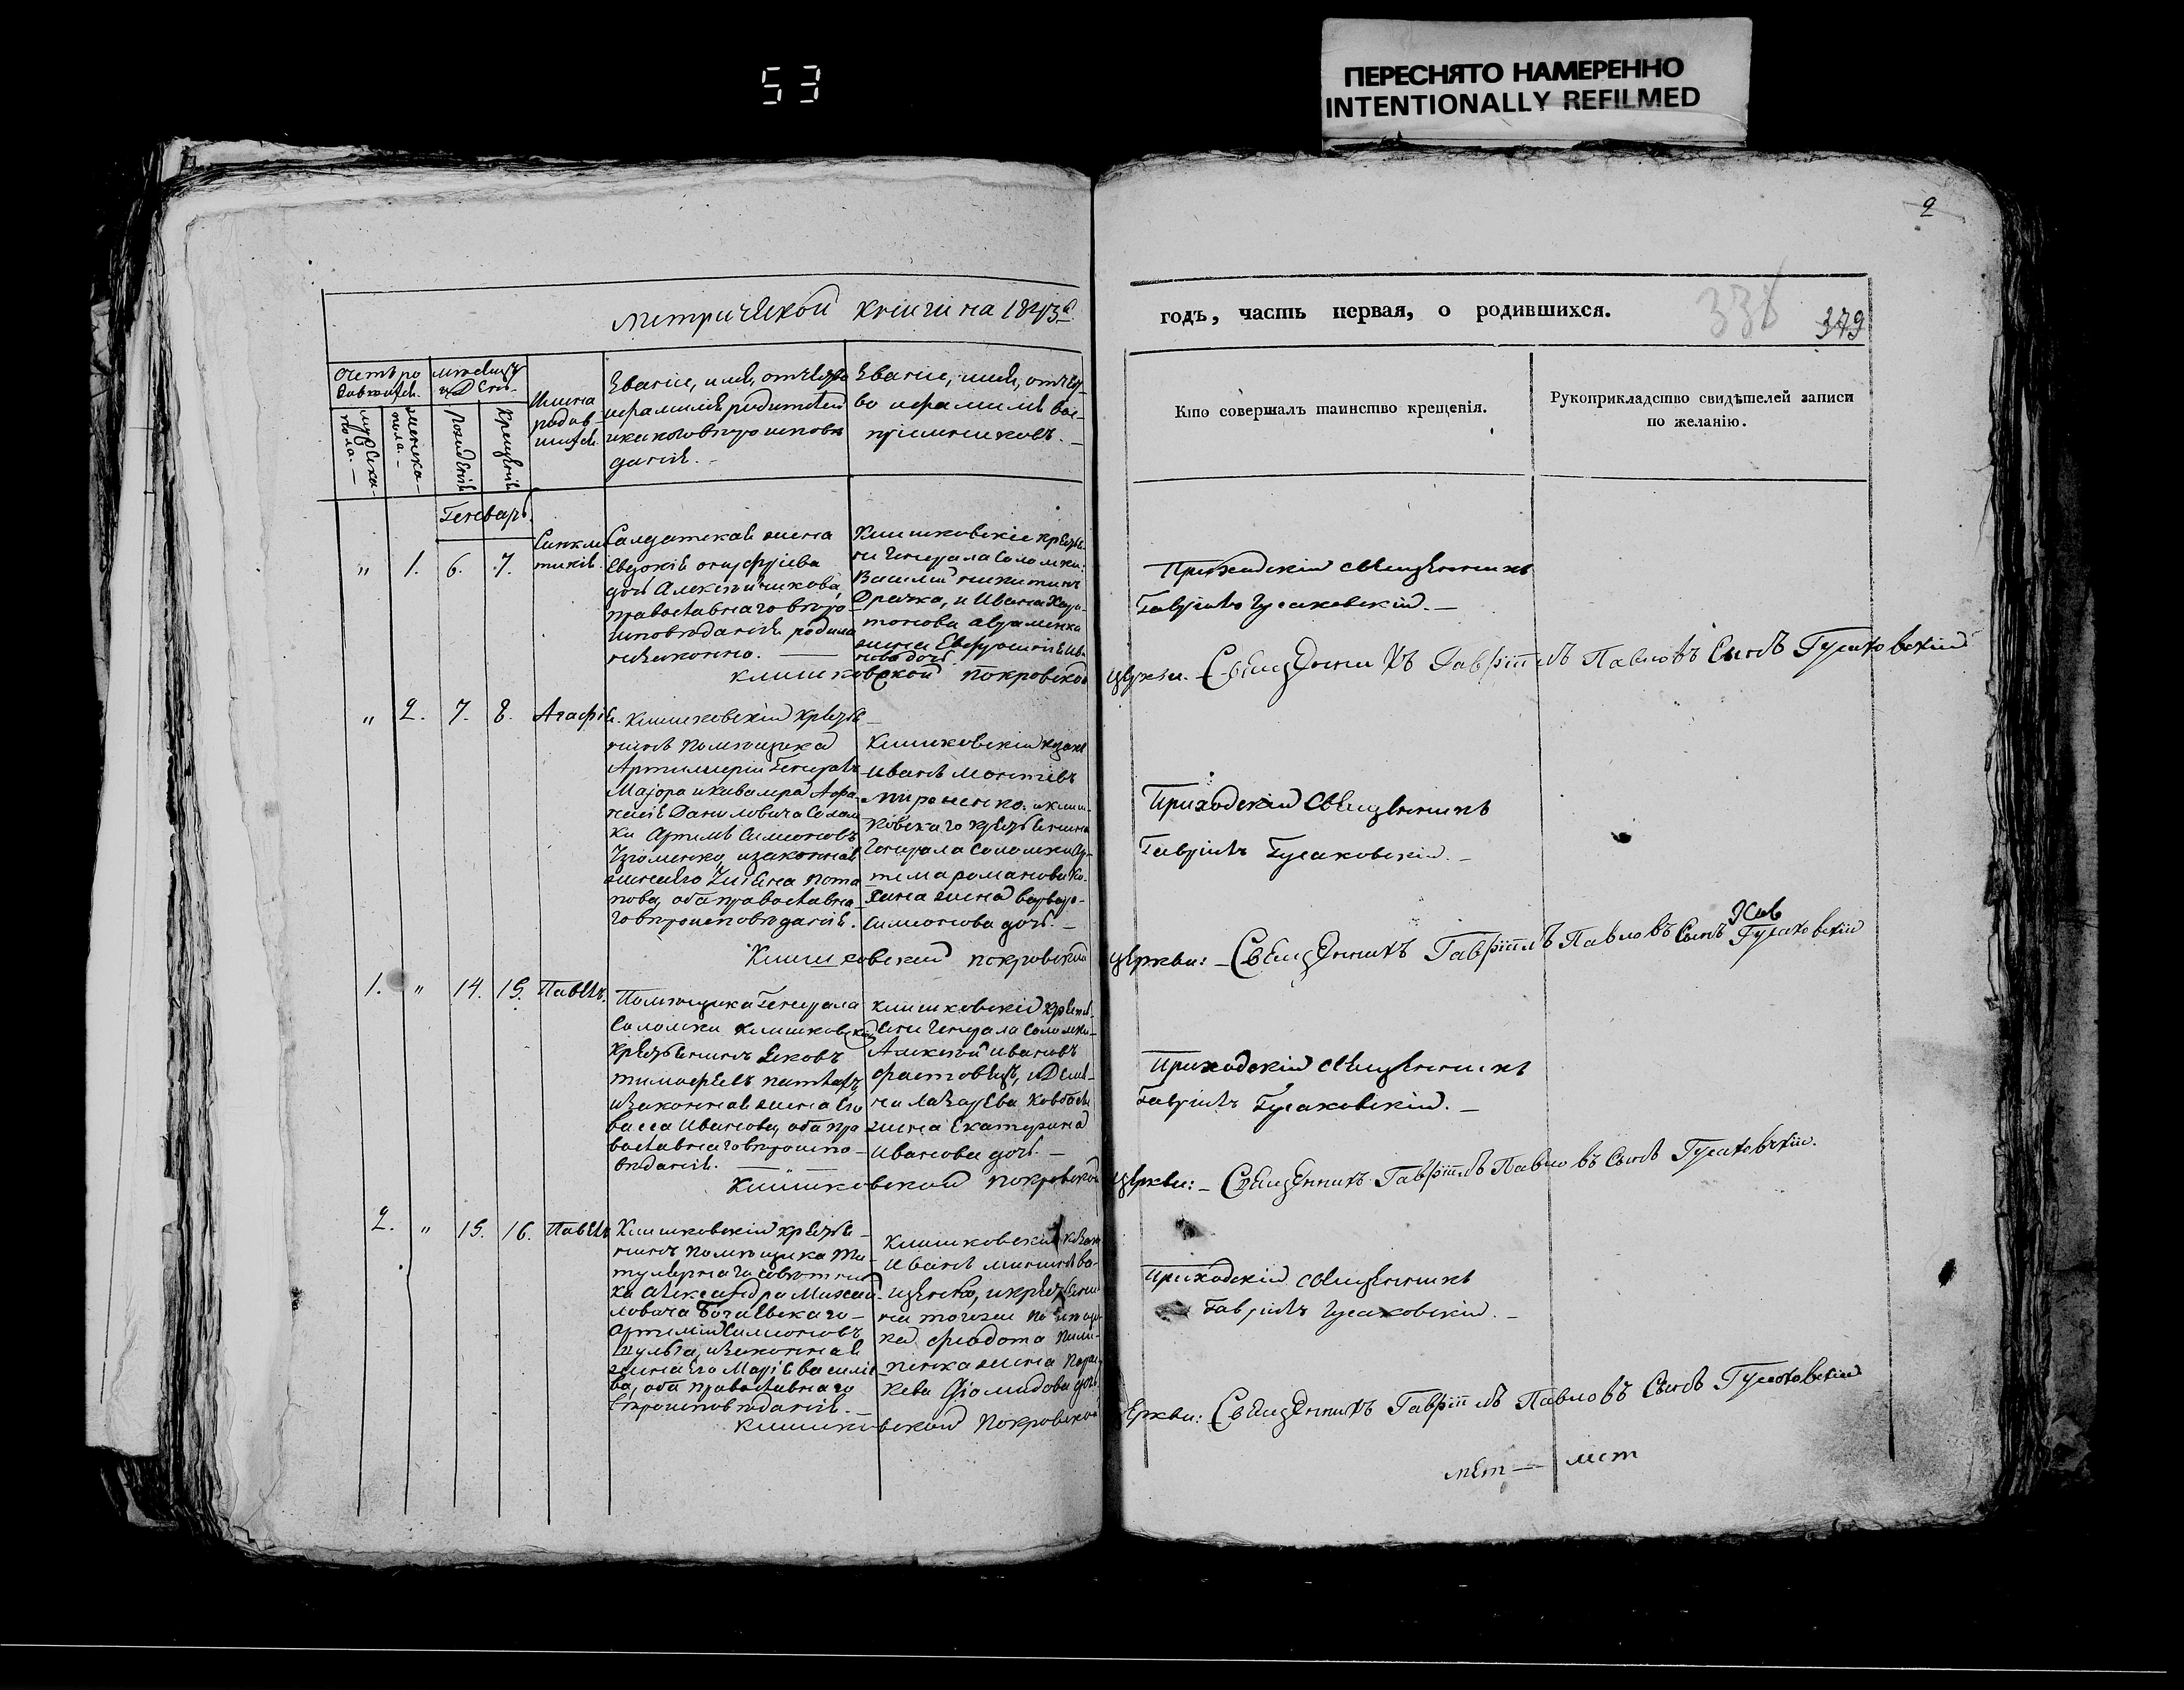 53
ПЕРЕСНЯТО НАМЕРЕННО
INTENTIONALLY REFILMED
2
метрической книги на 1843й
годъ, часть первая, о родившихся.
338
379
Счетъ ро
мѣсяцъ
и День
мужеска
пола.
женска
пола.
Рожденія
Крещенія
Имена
родив-
шихся
Званіе, имя, отчество
и фамилія родителей
и какого вѣроисповѣ
данія.
Званіе, имя, отчест-
во и фамилія вос-
пріемниковъ.
Кто совершалъ таинство крещенія.
Рукоприкладство свидѣтелей записи
по желанію.
Генварь
" 1. 6. 7.
Синкли
тикія.
Салдатская жена
Евдокія Онуфріева
дочь
православнаго вѣро
исповѣданія родила
незаконно.
Клишковскіе крестья
не Генерала Соломки:
Василій Никитинъ
Драчка, и Ивана Хари
тонова Авраменка
жена Евфросинія Ива
нова дочь
Приходскій священникъ
Гавріилъ Гусаковскій.
Клишковской Покровской
церкви. Священникъ Гавріилъ Павловъ Сынъ Гусаковскій
" 2. 7. 8. Агафія.
Клишковскій крестья
нинъ помѣщика
Артиллеріи Генералъ
Маіора и кавалера Афа
насія Даниловича Солом
ки Артемъ Симоновъ
и законная
жена его Пота
пова, оба православна
го вѣроисповѣданія.
Клишковскій козакъ
Иванъ
Мироненко: и клиш
ковскаго крестьянина
Генерала Соломки Ар
тема Романова
жена Варвара
Симонова дочь.
Приходскій священникъ
Гавріилъ Гусаковскій.
Клишковской Покровской
церкви: Священникъ Гавріилъ Павловъ Сынъ Гусаковскій
1. " 14. 15. Павелъ.
Помѣщика Генерала
Соломки Клишковскій
крестьянинъ Яковъ
Тимофѣевъ
и законная жена его
Васса Иванова, оба пра
вославнаго вѣроиспо
вѣданія.
Клишковскій крестья
Генерала Соломки
Алексѣй Ивановъ
жена Екатерина
Иванова дочь.
Приходскій священникъ
Гавріилъ Гусаковскій.
Клишковской Покровской
церкви: Священникъ Гавріилъ Павловъ Сынъ Гусаковскій.
2. " 15. 16. Павелъ
Клишковскій крестья
нинъ помѣщика Ти
тулярнаго совѣтни
ка Александра Михай
ловича
Артемій Симоновъ
Шульга, и законная
жена его Марія Василіе
ва, оба православнаго
вѣроисповѣданія.
Клишковскій козакъ
Иванъ
и крестьяни
на того же помѣщи
ка Феодота Пили
пенка жена Парас
кева Діомидова дочь
Приходскій священникъ
Гавріилъ Гусаковскій.
Клишковской Покровской
церкви: Священникъ Гавріилъ Павловъ Сынъ Гусаковскій